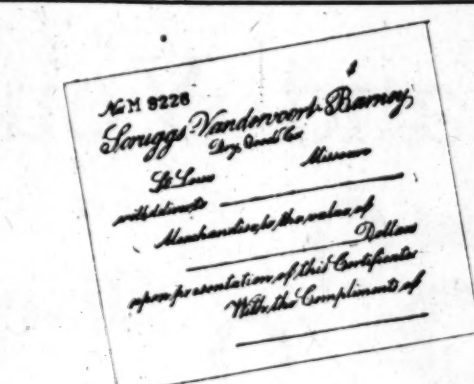 No M 9228
Scruggs-Vandervoort-Barney
Dry Goods Co.
St Louis Missouri
will deliver to
Merchandise to the value of
Dollars
upon presentation of this Certificate
With the Compliments of